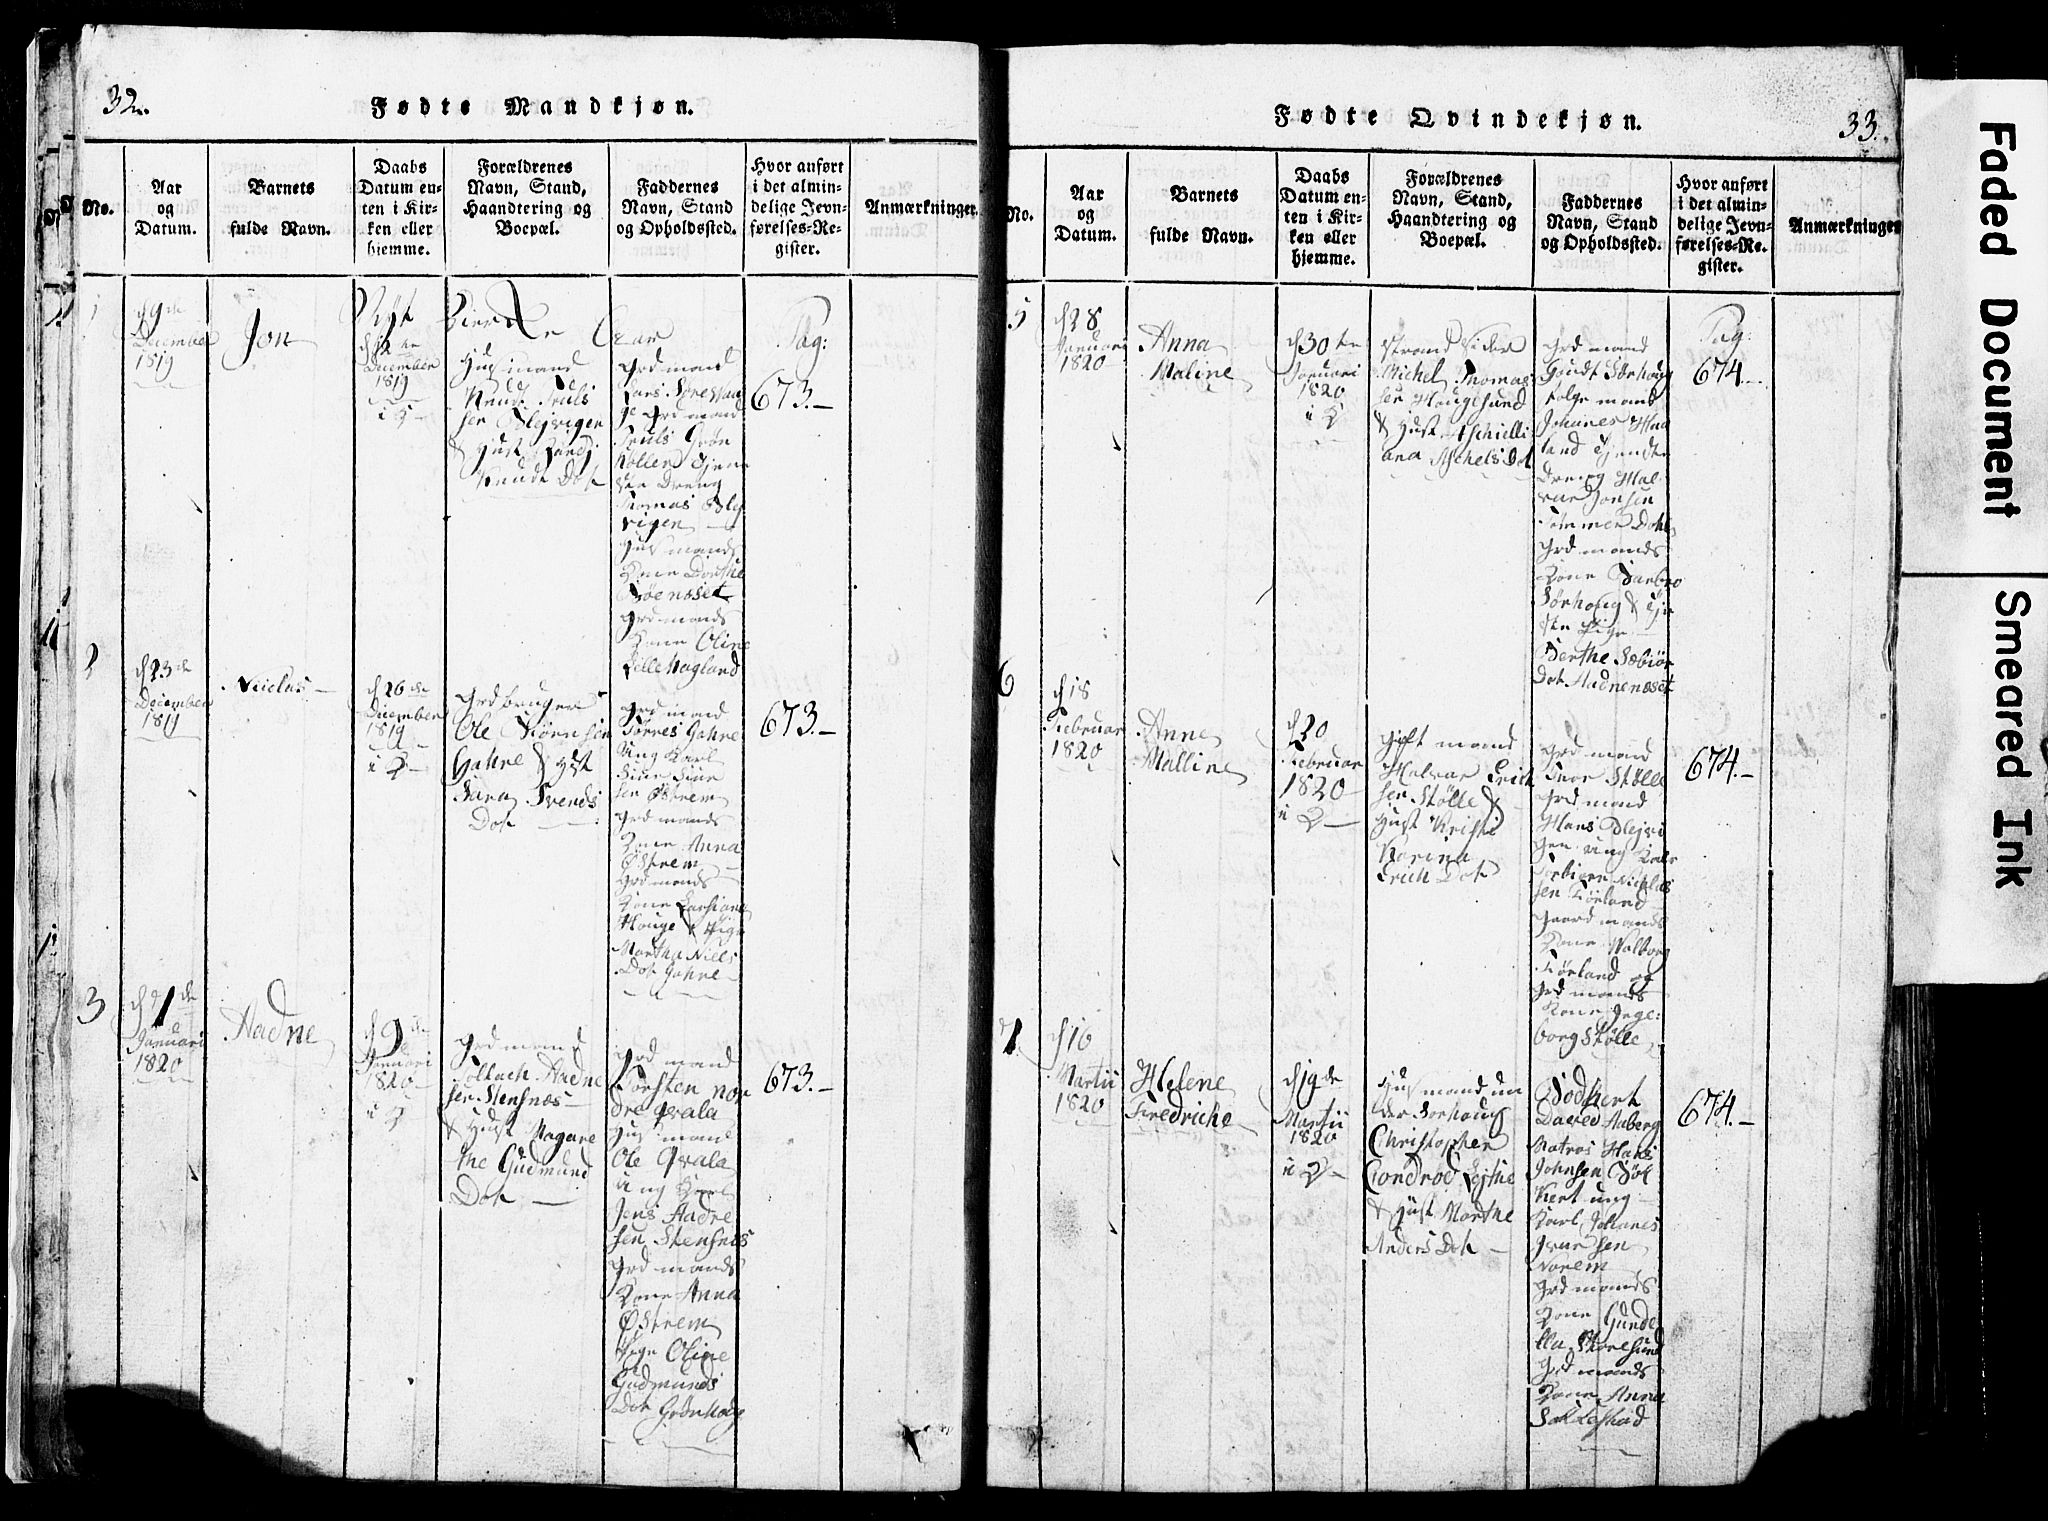 32.
Fødte Mandkjøn.
No.
Aar
og
Datum.
Barnets
fulde Navn.
Daabs
Datum en-
ten i Kir-
ken eller
hjemme.
Forældrenes
Navn, Stand,
Haandtering og
Boepæl.
Faddernes
Navn, Stand
og Opholdssted.
Hvor anført
i det almin-
delige Jevn-
førelses-Re-
gister.
Anmærkninger.
Nyt Kierke Aar
1
d 9de
December
1819
Jon
d 12te
December
1819
i K
Huusmand
Knudt Truls
sen Blejvigen
& Hust Randj
Knudt Dot
Grd mand
Lars
Grd mand
Truls Grön
Kollen Tjene
ste Dreng
Thomas Blej
vigen
Huusmands
Kone Dorthe
Grdmands
Kone Oline
Lille Hagland
Pag:
673.
2
d 23de
December
1819
Niclas
d 26de
December
1819
i K
Grdbruger
Ole Biörnsen
Gahre & Hst
Sara Svends
Dot
Grd mand
Torres Gahre
Ung Karl
Siur Siur
sen Østrem
Grd mands
Kone Anna
Østrem
Grd mands
Kone
Houge & Pige
Martha Niels
Dot Gahre
673.
3
d 1de
Januari
1820
Aadne
d 9de
Januari
1820
i K
Grd mand
Aadne
sen Stensnæs
& Hust Magare
the Gudmund
Dot
Grd mand
Torsten nor
dre Qvala
Huusmand
Ole Qvala
Ung Karl
Jens Aadne
sen Stensnæs
Grd mands
Kone Anna
Østrem
Pige Oline
Gudmunds
Dot Grönhoug
673.
Fødte Qvindekjøn.
33.
No.
Aar
og
Datum.
Barnets
fulde Navn.
Daabs
Datum en-
ten i Kir-
ken eller
hjemme.
Forældrenes
Navn, Stand,
Haandtering og
Boepæl.
Faddernes
Navn, Stand
og Opholdssted.
Hvor anført
i det almin-
delige Jevn-
førelses-Re-
gister.
Anmærkninger
5
d 28
Januari
1820
Anna
Maline
d 30te
Januari
1820
i K
Strand Sidder
Michel Thomas
sen Hougesund
& Hust Aschielli
ana Aschels Dot
Grd mand
Gaudt Sörhoug
Folge mand
Johanes Haa
land Tjenste
Dreng Hal
vor Jonsen
Tömmer Dahl
Grd mands
Kone Barbro
Sörhoug & Tjen
ste Pige
Berthe Sæbiör
Dot Aadnenæset
Pag:
674.
6
d 18
Februar
1820
Anne
Malline
d 20
Februar
1820
i K
Gift mand
Halvar Erich
sen Stölle &
Hust Kristi
Karina
Erich Dot
Grd mand
Ivor Stölle
Grd mand
Hans Blejvi
gen Ung Karl
Torbiörn Nichlas
sen Förland
Gaard mands
Kone Valborg
Förland og
Grd mands
Kone Inge:
borg Stölle
674.
7
d 16
Martii
1820
Helene
Fredriche
d 19de
Martii
1820
i K
Huusmand un
der Sörhoug
Christopher
Condrod Lejthe
& Hust Marthe
Anders Dot
Bödkert
David Aaberg
Matros Hans
Johnsen Böd
kert ung
Karl Johanes
Ivar sen
Norem
Grd mands
Kone Gunde
lla Skaresund
Grd mands
Kone Anna
Saltöstrad
674.
Faded Document Smeared Ink